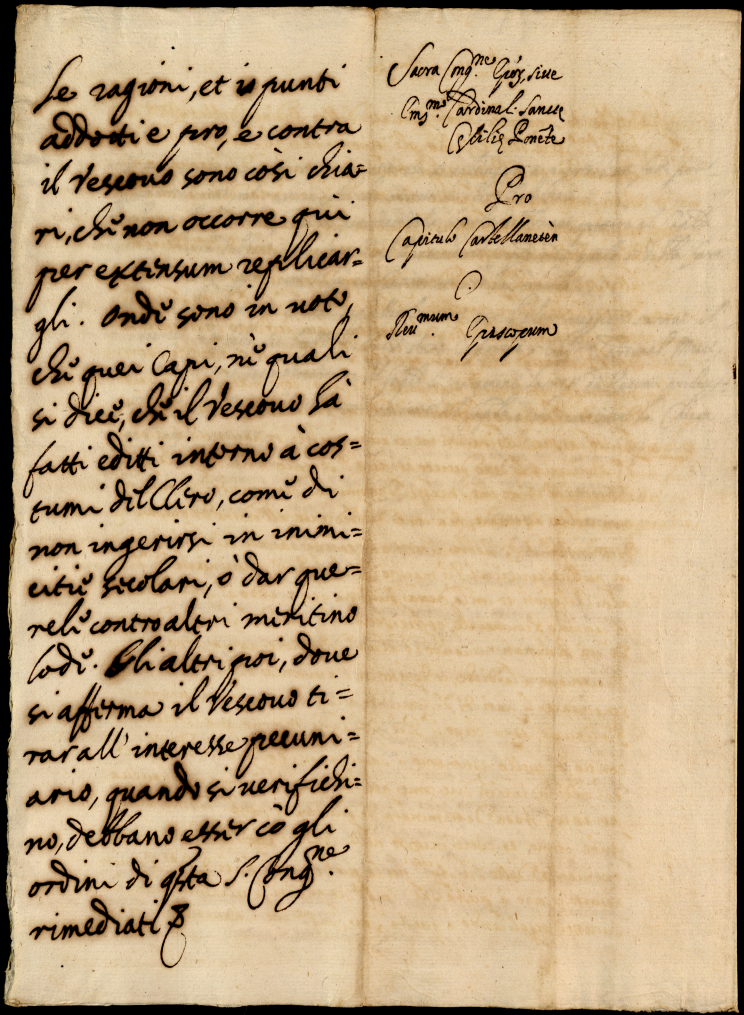 Le ragioni, et i punti
addotti e pro, e contra
il Vescovo sono così chia=
ri, che non occorre quì
per extensum replicar=
gli. Onde sono in voto,
che quei Capi, ne quali
si dice, che il Vescovo hà
fatti editti intorno à cos=
tumi del Clero, come di
non ingerirsi in inimi=
citie secolari, ò dar que=
rele contro altri meritino
lode. Gli altri poi, dove
si afferma il Vescovo ti=
rar all' interesse pecuni=
ario, quando si verifichi=
no, debbano esser cò gli
ordini di qsta S. Congne.
rimediati
Sacra Congne. Epōr, sive
Emmo. Cardinal. Sanctę
Cęcilię Ponēte
Pro
Capitulo Castellanetēn
C.
Revmum. Episcopum